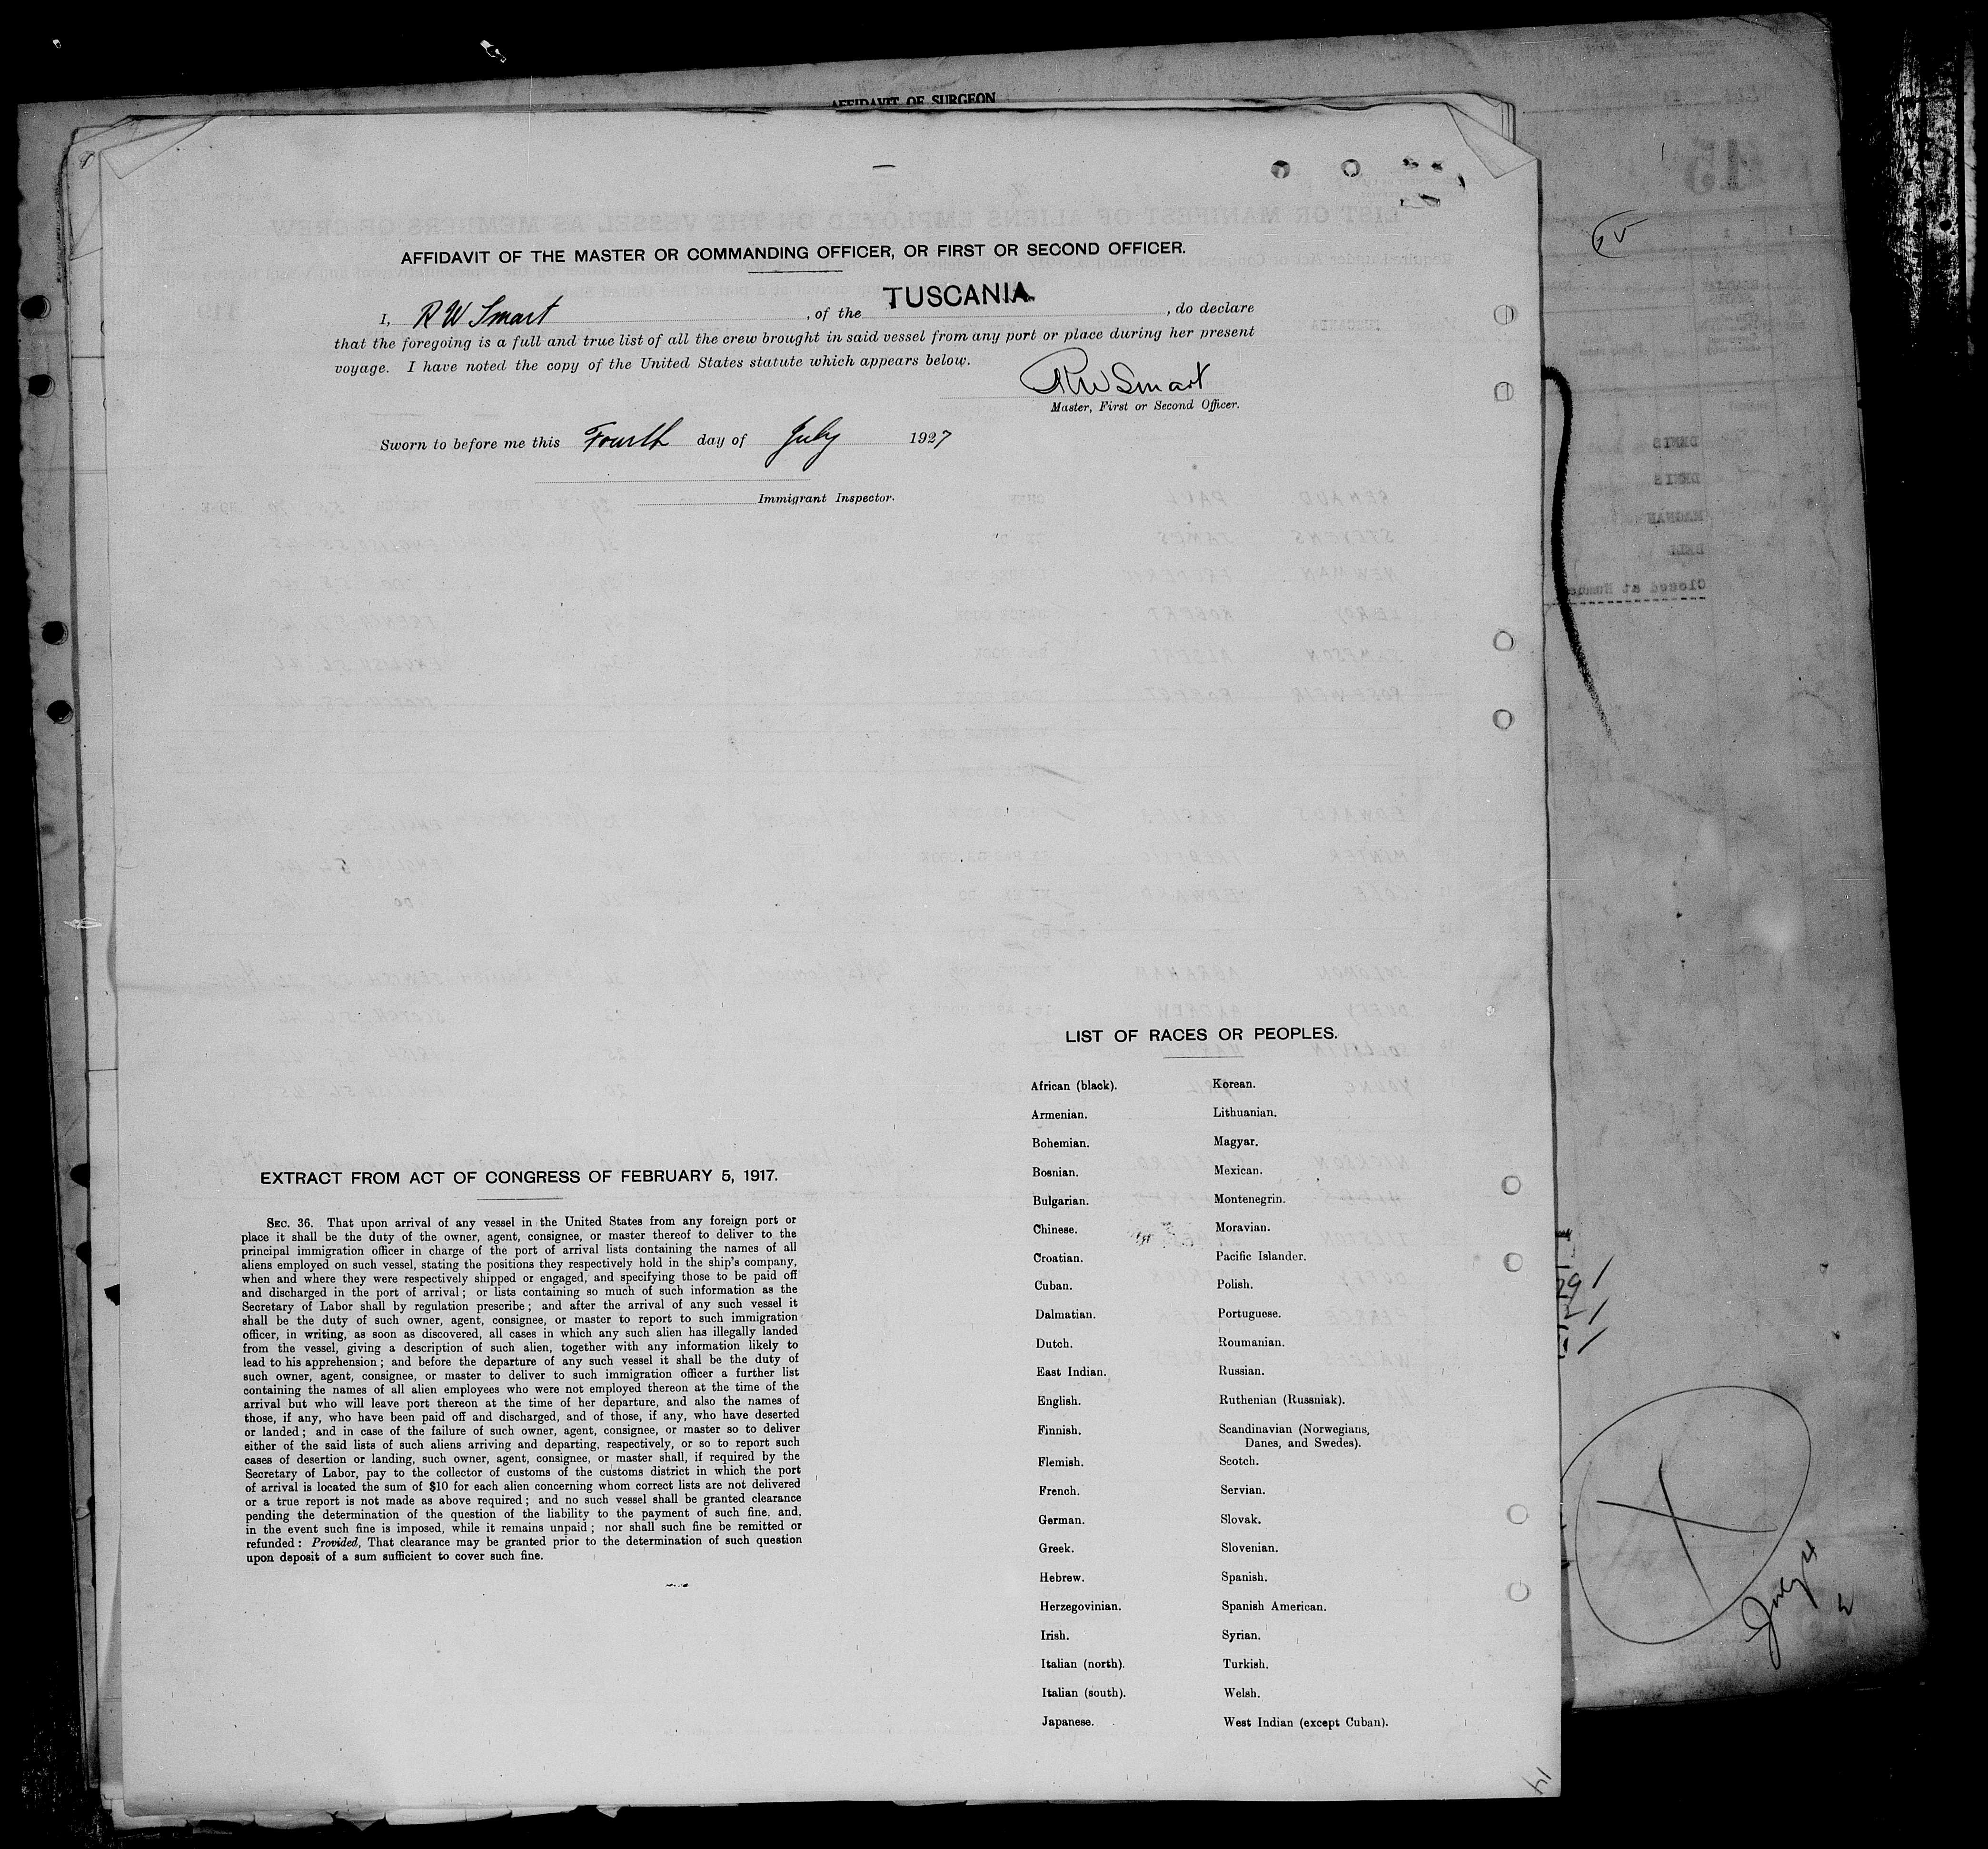 AFFIDAVIT OF SURGEON
AFFIDAVIT OF THE MASTER OR COMMANDING OFFICER, OR FIRST OR SECOND OFFICER.
I, R W Smart, of the TUSCANIA, do declare
that the foregoing is a full and true list of all the crew brought in said vessel from any port or place during her present
voyage. I have noted the copy of the United States statute which appears below.
RW Smart
Master, First or Second Officer.
Sworn to before me this Fourth day of July 1927
Immigrant Inspector.
EXTRACT FROM ACT OF CONGRESS OF FEBRUARY 5, 1917.
SEC. 36. That upon arrival of any vessel in the United States from any foreign port or
place it shall be the duty of the owner, agent, consignee, or master thereof to deliver to the
principal immigration officer in charge of the port of arrival lists containing the names of all
aliens employed on such vessel, stating the positions they respectively hold in the ship's company,
when and where they were respectively shipped or engaged, and specifying those to be paid off
and discharged in the port of arrival; or lists containing so much of such information as the
Secretary of Labor shall by regulation prescribe; and after the arrival of any such vessel it
shall be the duty of such owner, agent, consignee, or master to report to such immigration
officer, in writing, as soon as discovered, all cases in which any such alien has illegally landed
from the vessel, giving a description of such alien, together with any information likely to
lead to his apprehension; and before the departure of any such vessel it shall be the duty of
such owner, agent, consignee, or master to deliver to such immigration officer a further list
containing the names of all alien employees who were not employed thereon at the time of the
arrival but who will leave port thereon at the time of her departure, and also the names of
those, if any, who have been paid off and discharged, and of those, if any, who have deserted
or landed; and in case of the failure of such owner, agent, consignee, or master so to deliver
either of the said lists of such aliens arriving and departing, respectively, or so to report such
cases of desertion or landing, such owner, agent, consignee, or master shall, if required by the
Secretary of Labor, pay to the collector of customs of the customs district in which the port
of arrival is located the sum of $10 for each alien concerning whom correct lists are not delivered
or a true report is not made as above required; and no such vessel shall be granted clearance
pending the determination of the question of the liability to the payment of such fine, and,
in the event such fine is imposed, while it remains unpaid; nor shall such fine be remitted or
refunded: Provided, That clearance may be granted prior to the determination of such question
upon deposit of a sum sufficient to cover such fine.
LIST OF RACES OR PEOPLES.
African (black).
Armenian.
Bohemian.
Bosnian.
Bulgarian.
Chinese.
Croatian.
Cuban.
Dalmatian.
Dutch.
East Indian.
English.
Finnish.
Flemish.
French.
German.
Greek.
Hebrew.
Herzegovinian.
Irish.
Italian (north).
Italian (south).
Japanese.
Korean.
Lithuanian.
Magyar.
Mexican.
Montenegrin.
Moravian.
Pacific Islander.
Polish.
Portuguese.
Roumanian.
Russian.
Ruthenian (Russniak).
Scandinavian (Norwegians,
Danes, and Swedes).
Scotch.
Servian.
Slovak.
Slovenian.
Spanish.
Spanish American.
Syrian.
Turkish.
Welsh.
West Indian (except Cuban).
July 4
14